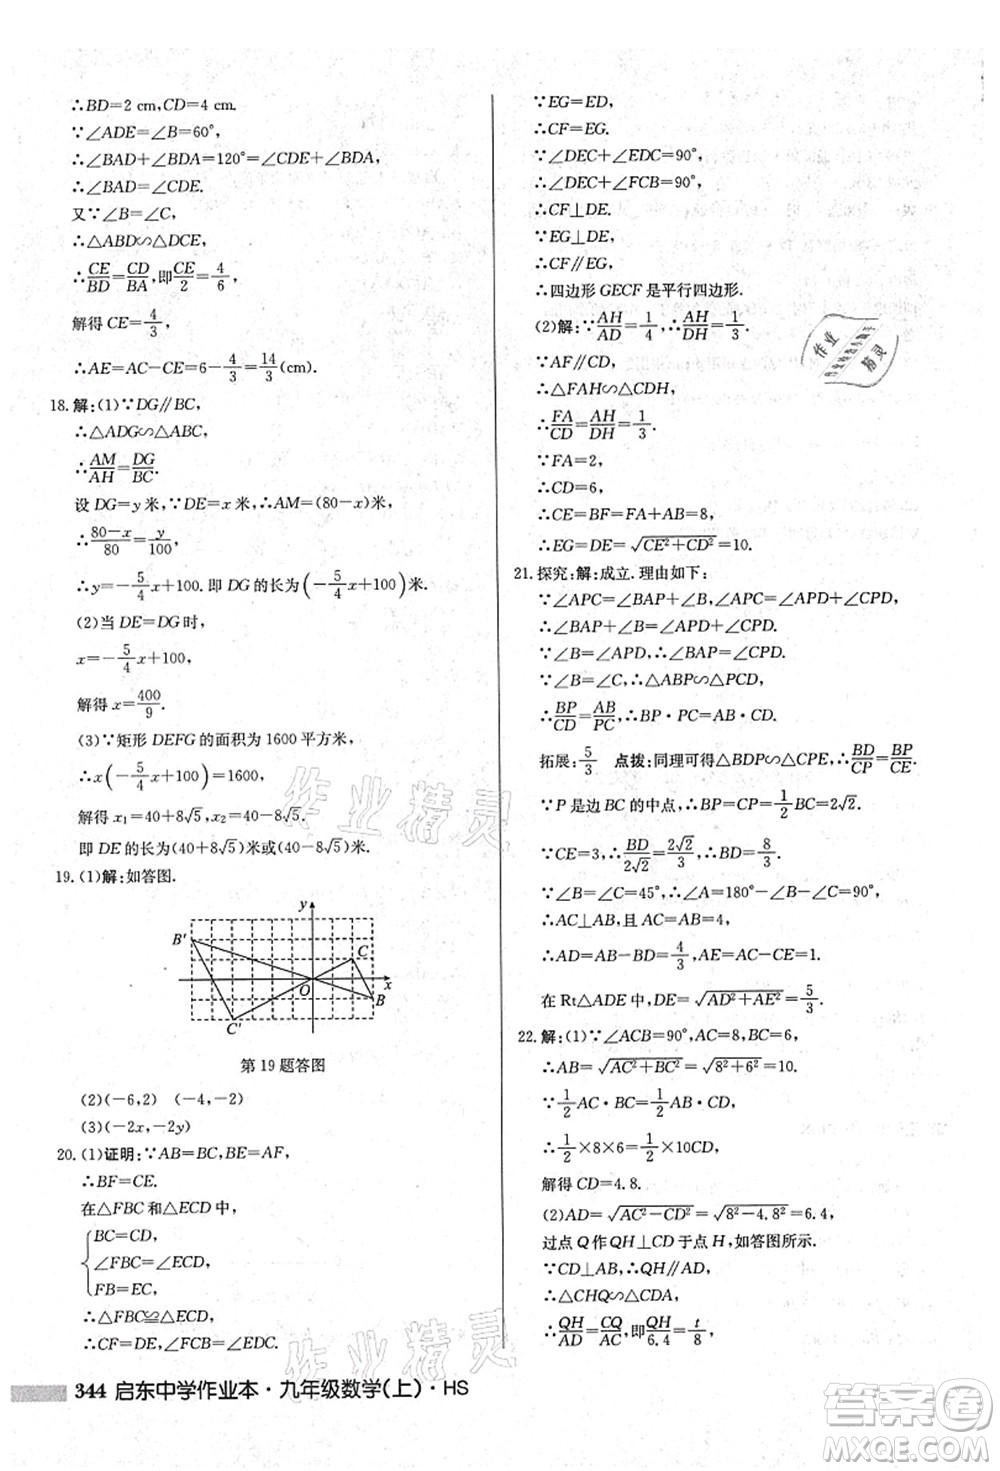 ∴BD=2 cm,CD=4 cm.
∵∠ADE=∠B=60°,
∴∠BAD+∠BDA=120°=∠CDE+∠BDA.
∴∠BAD=∠CDE.
又∵∠B=∠C,
∴△ABD∽△DCE.
∴CE/BD=CD/BA,即CE/2=4/6,
解得 CE=4/3,
∴AE=AC-CE=6-4/3=14/3(cm).
18.解:(1)∵DG∥BC,
∴△ADG∽△ABC,
∴AM/AH=DG/BC.
设 DG=y 米,∵DE=x 米,∴AM=(80-x)米,
∴(80-x)/80=y/100,
∴y=-5/4x+100.即 DG 的长为(-5/4x+100)米.
(2)当 DE=DG 时,
x=-5/4x+100,
解得 x=400/9.
(3)∵矩形 DEFG 的面积为 1600 平方米,
∴x(-5/4x+100)=1600,
解得 x₁=40+8√5,x₂=40-8√5.
即 DE 的长为(40+8√5)米或(40-8√5)米.
19.(1)解:如答图.
y
B′
C
O
x
B
C′
第 19 题答图
(2)(-6,2) (-4,-2)
(3)(-2x,-2y)
20.(1)证明:∵AB=BC,BE=AF,
∴BF=CE.
在△FBC 和△ECD 中,
BC=CD,
∠B=∠ECD,
FB=EC,
∴△FBC≌△ECD.
∴CF=DE,∠FCB=∠EDC.
344 启东中学作业本·九年级数学(上)·HS
∵EG=ED,
∴CF=EG.
∵∠DEC+∠EDC=90°,
∴∠DEC+∠FCB=90°,
∴CF⊥DE.
∵EG⊥DE,
∴CF∥EG,
∴四边形 GECF 是平行四边形.
(2)解:∵AH/AD=1/4,∴AH/DH=1/3.
∵AF∥CD,
∴△FAH∽△CDH,
∴FA/CD=AH/DH=1/3.
∵FA=2,
∴CD=6,
∴CE=BF=FA+AB=8,
∴EG=DE=√(CE²+CD²)=10.
21.探究:解:成立.理由如下:
∵∠APC=∠BAP+∠B,∠APC=∠APD+∠CPD,
∴∠BAP+∠B=∠APD+∠CPD.
∵∠B=∠APD,∴∠BAP=∠CPD.
∵∠B=∠C,∴△ABP∽△PCD,
∴BP/CD=AB/PC,∴BP·PC=AB·CD.
拓展:5/3 点拨:同理可得△BDP∽△CPE,∴BD/CP=BP/CE.
∵P 是边 BC 的中点,∴BP=CP=1/2BC=2√2.
∵CE=3,∴BD/2√2=2√2/3,∴BD=8/3.
∵∠B=∠C=45°,∴∠A=180°-∠B-∠C=90°,
∴AC⊥AB,且 AC=AB=4,
∴AD=AB-BD=4/3,AE=AC-CE=1.
在 Rt△ADE 中,DE=√(AD²+AE²)=5/3.
22.解:(1)∵∠ACB=90°,AC=8,BC=6,
∴AB=√(AC²+BC²)=√(8²+6²)=10.
∵1/2AC·BC=1/2AB·CD,
∴1/2×8×6=1/2×10CD,
解得 CD=4.8.
(2)AD=√(AC²-CD²)=√(8²-4.8²)=6.4,
过点 Q 作 QH⊥CD 于点 H,如答图所示.
∵CD⊥AB,∴QH∥AD,
∴△CHQ∽△CDA,
∴QH/AD=CQ/AC,∴QH/6.4=t/8,
作业精灵
作业精灵
作业
精灵
答案圈
MXQE.COM